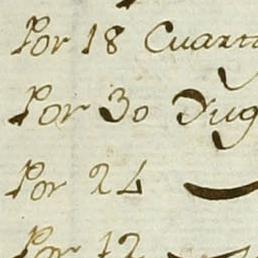 Por 18 Cuart
Por 30 Jug
Por 24
Por 12